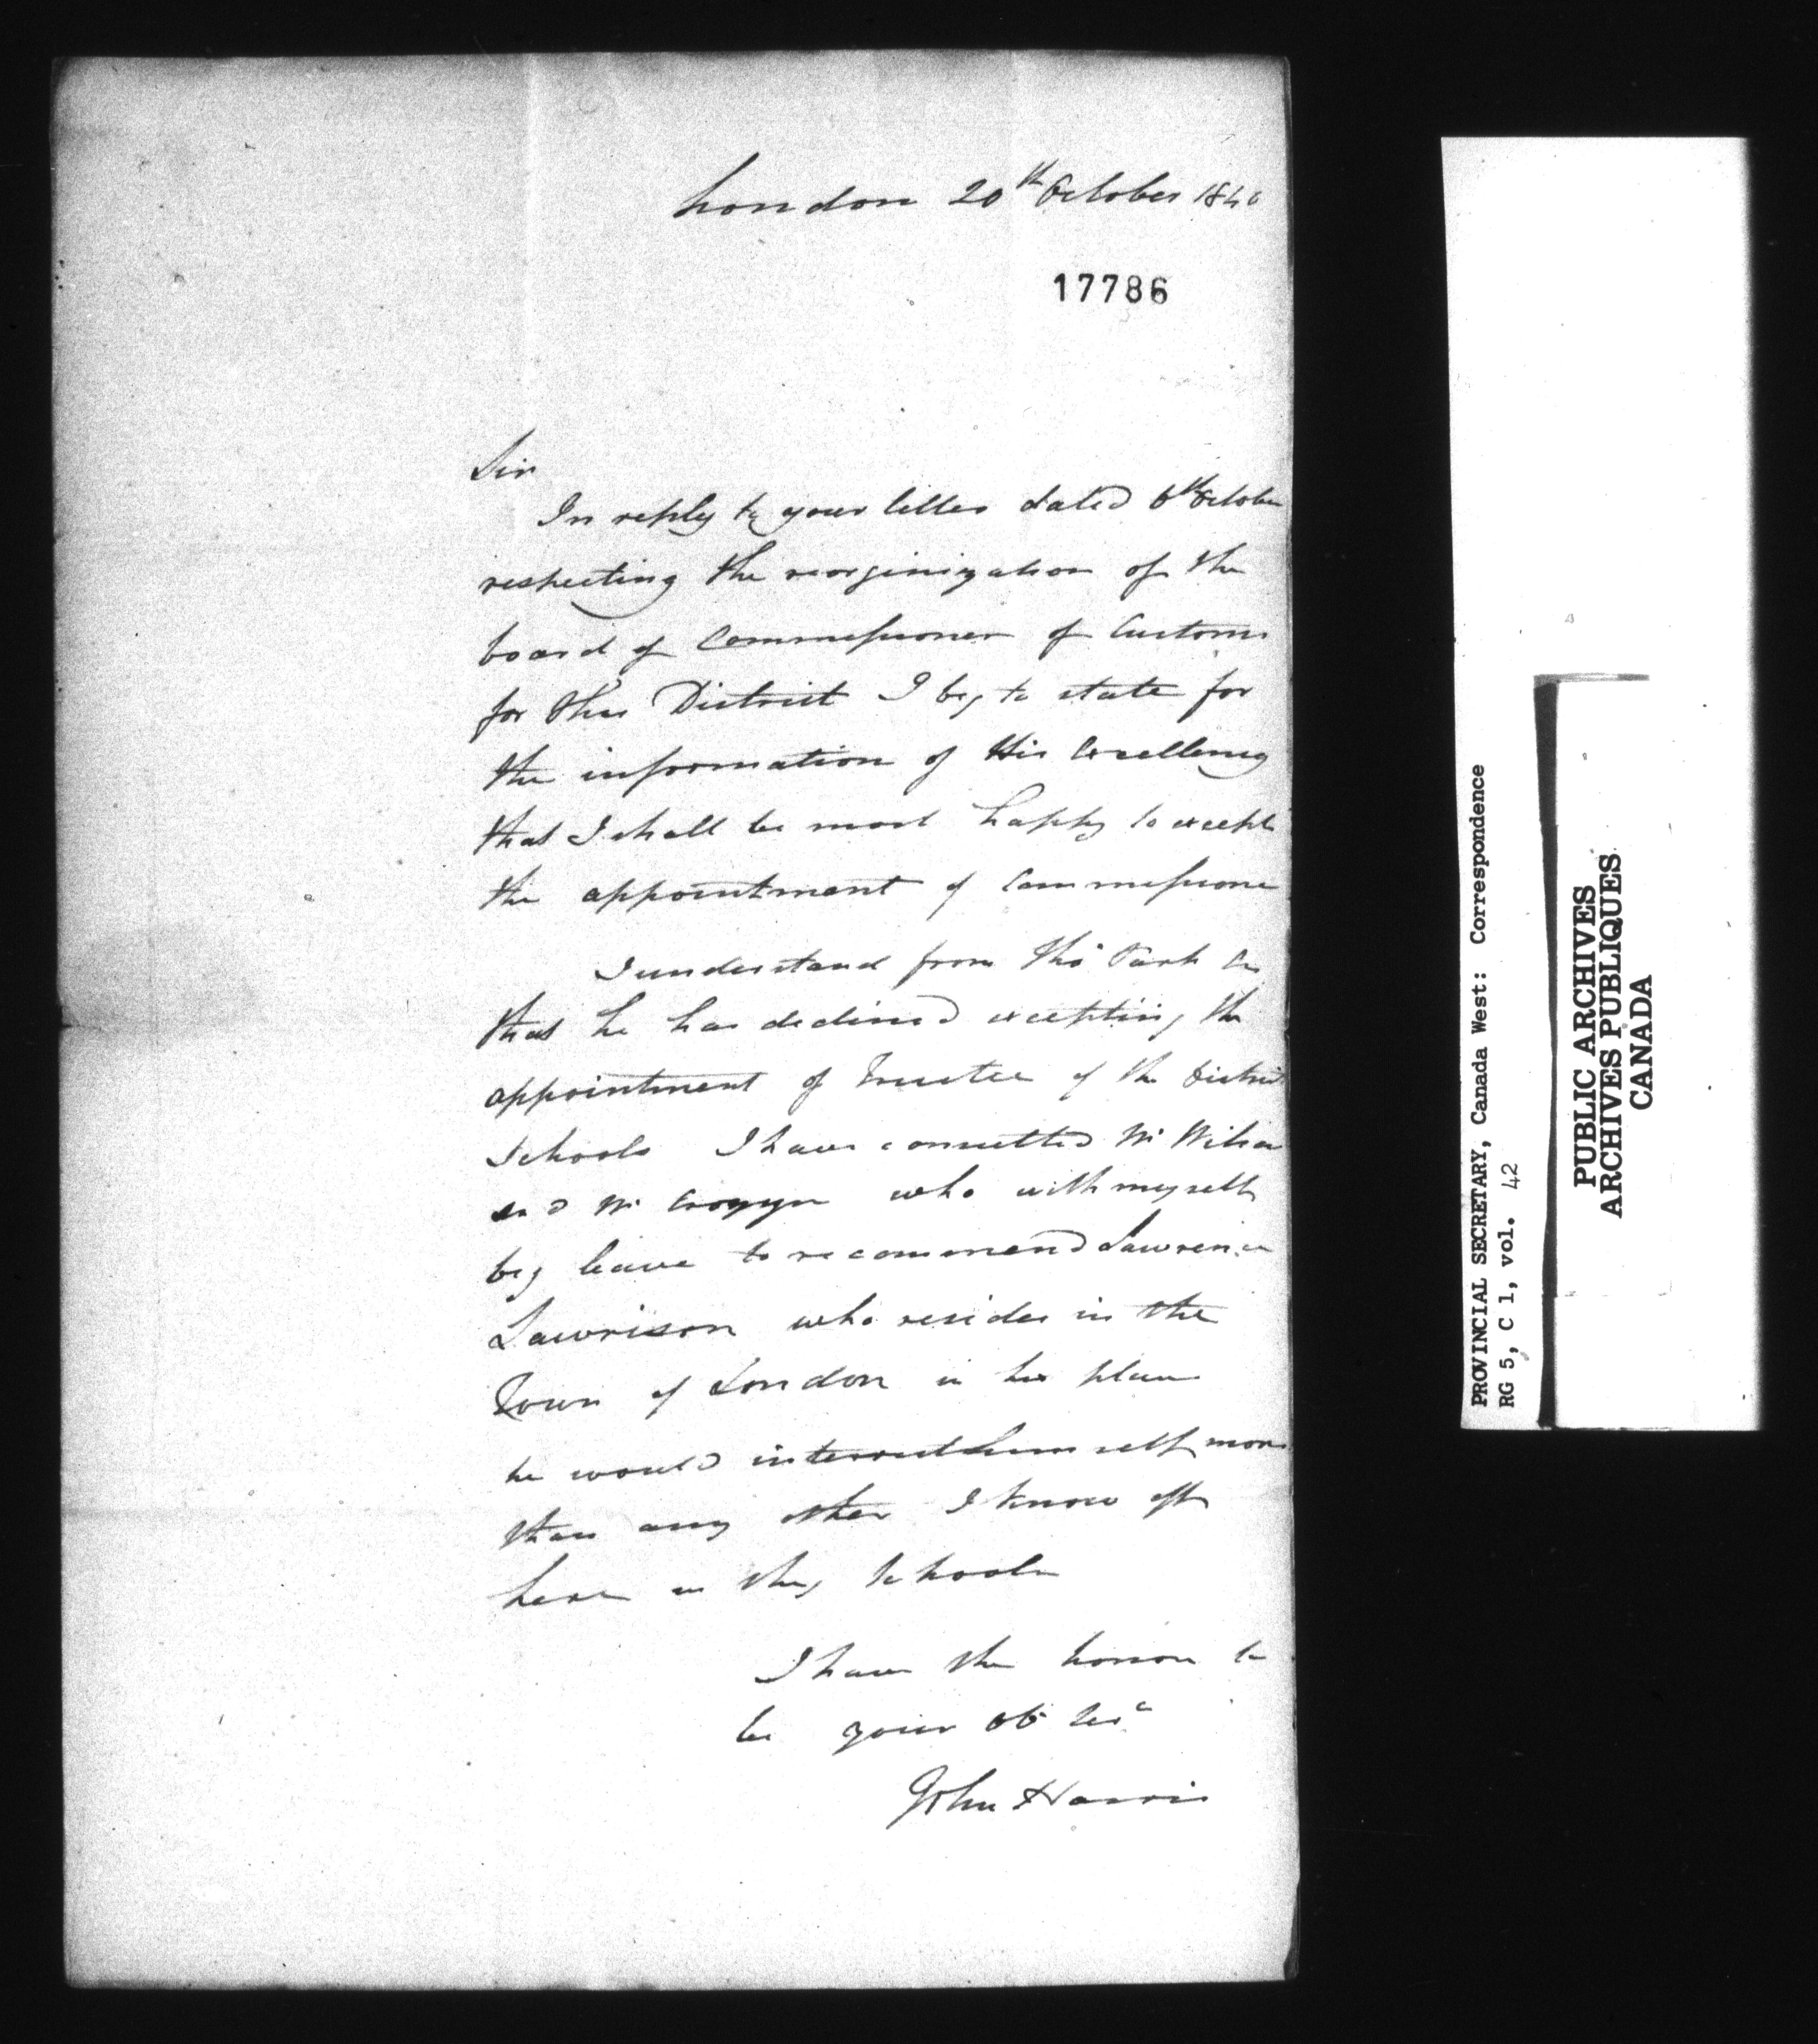 London 20th October 1840
17786
Sir
In reply to your letter dated 6th October
respecting the reorginization of the
board of Commissioner of Customs
for this District I beg to state for
the information of His Excellency
that I shall be most happy to except
the appointment of Commissione
I understand from Thos Park
that he has declined excepting the
appointment of Trustee of the District
Schools I have consulted Mr Wilson
and Mr Cronyn who with myself
beg leave to recommend Lawrence
Lawrison who resides in the
Town of London in his place
he would interest himself more
than any other I know off
here in the Schools
I have the honor to
be your Ob Ser
John Harris
PROVINCIAL SECRETARY, Canada West: Correspondence
RG 5, C 1, vol. 42
PUBLIC ARCHIVES
ARCHIVES PUBLIQUES
CANADA